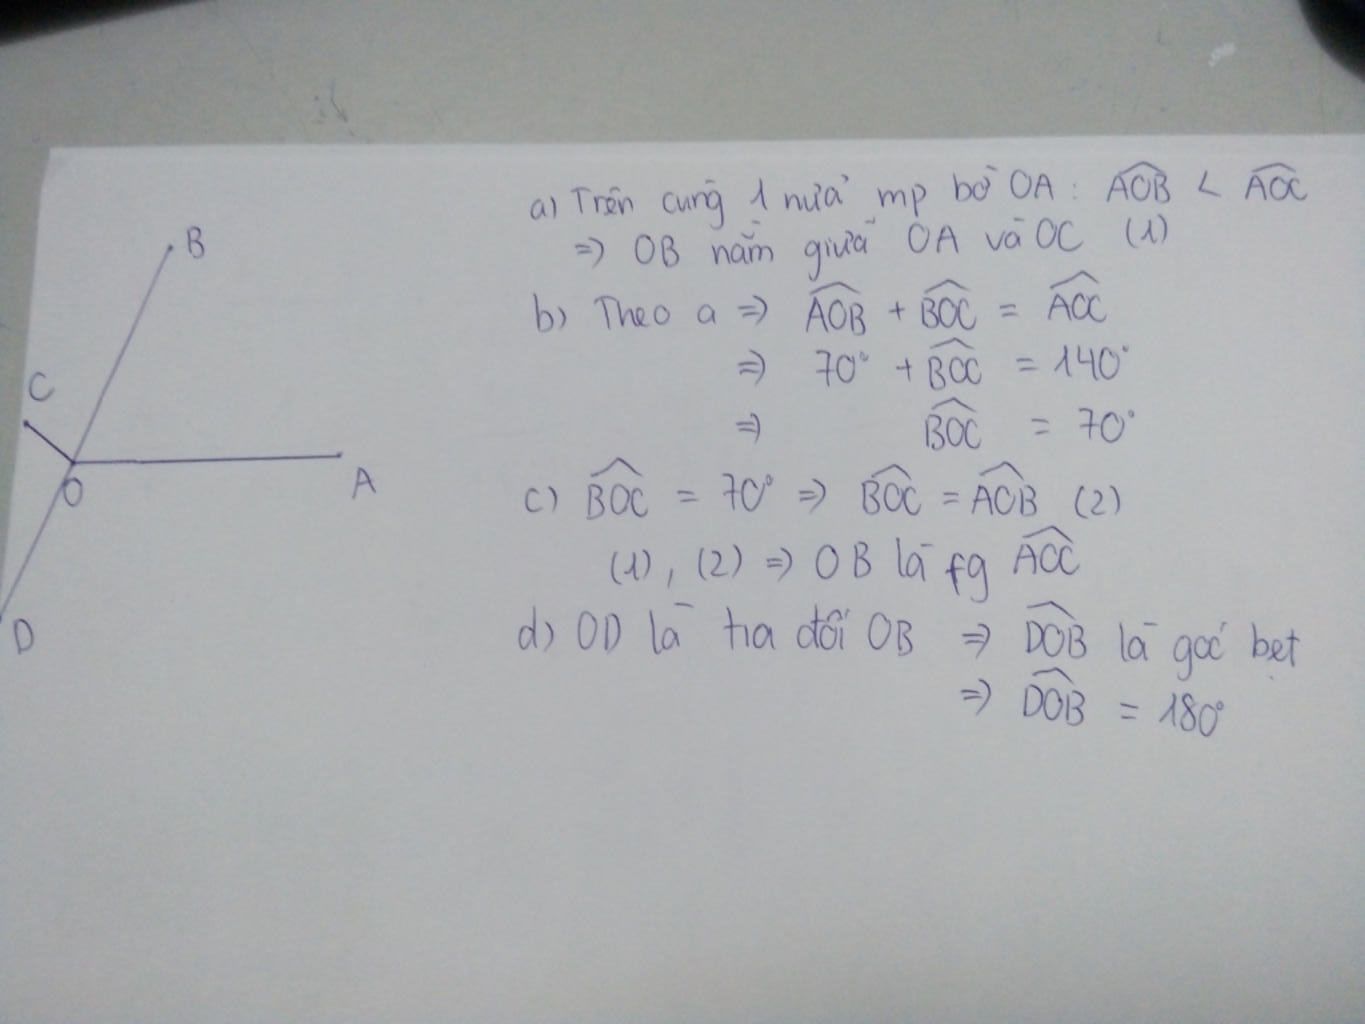 B
C
O
A
D
a) Trên cùng 1 nửa mp bờ OA : \widehat{AOB} < \widehat{AOC}
=> OB nằm giữa OA và OC (1)
b) Theo a => \widehat{AOB} + \widehat{BOC} = \widehat{AOC}
=> 70° + \widehat{BOC} = 140°
=> \widehat{BOC} = 70°
c) \widehat{BOC} = 70° => \widehat{BOC} = \widehat{AOB} (2)
(1), (2) => OB là fg \widehat{AOC}
d) OD là tia đối OB => \widehat{DOB} là góc bẹt
=> \widehat{DOB} = 180°